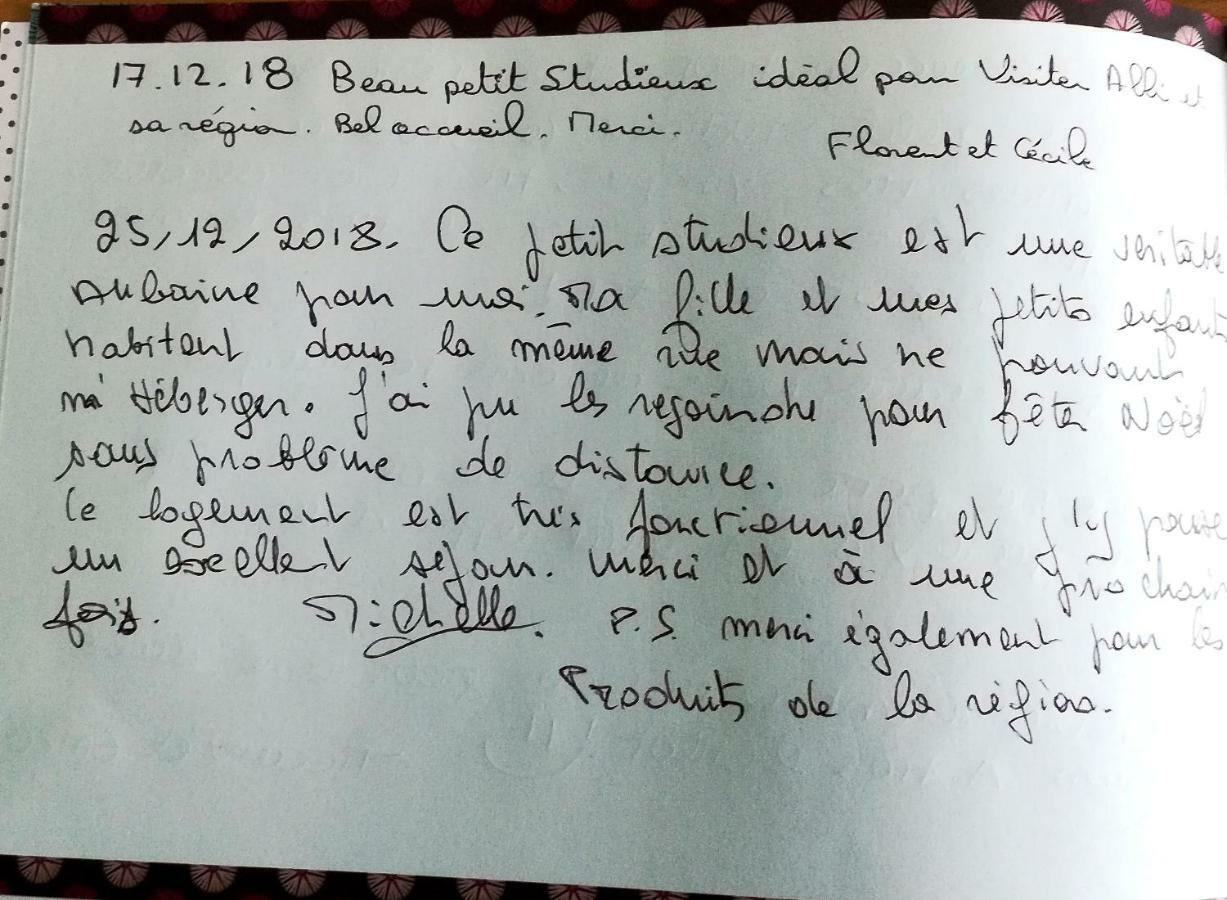 17.12.18 Beau petit Studieux idéal pour Visiter Albi et
sa région. Bel accueil. Merci.
Florent et Cécile
25/12/2018. Ce petit studieux est une véritable
aubaine pour moi. Ma fille et mes petits enfants
habitent dans la même rue mais ne pouvant
m'Héberger. J'ai pu les rejoindre pour fêter Noël
sans problème de distance.
Ce logement est très fonctionnel et j'y passe
un excellent séjour. Merci et à une prochain
fois. Michelle. P.S. merci également pour les
Produits de la région.